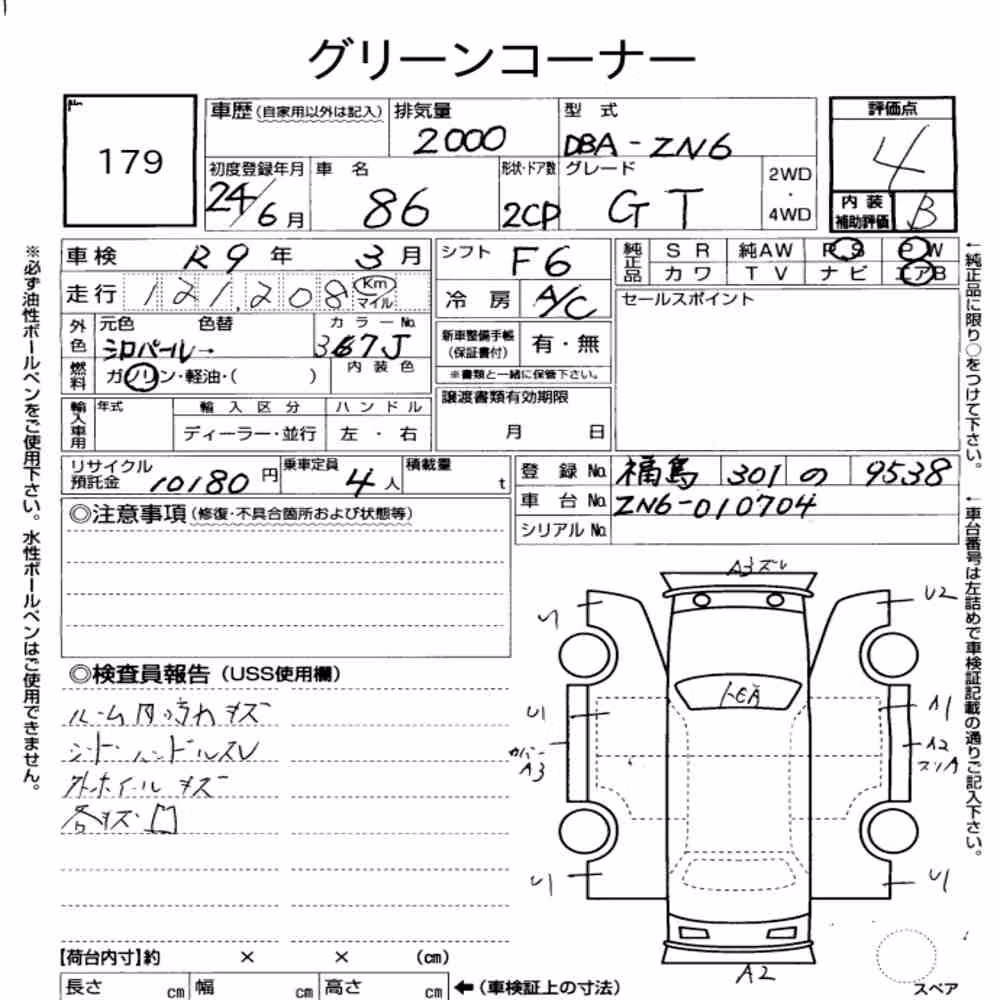 グリーンコーナー
179
車歴(自家用以外は記入) 排気量 2000 型式 DBA-ZN6
評価点 4
初度登録年月 24/6月 車名 86 形状・ドア数 2CP グレード GT 2WD・4WD
内装補助評価 B
車検 R9年3月 シフト F6
純正品 SR 純AW PS PW
カワ TV ナビ エアB
走行 121,208 Km マイル
冷房 A/C
セールスポイント
外色 元色 シロパール 色替 カラーNo.
新車整備手帳(保証書付) 有・無
※書類と一緒に保管下さい。
燃料 ガソリン・軽油・( ) 内装色
譲渡書類有効期限 月 日
輸入車用 年式 輸入区分 ハンドル
ディーラー・並行 左・右
リサイクル預託金 10180円 乗車定員 4人 積載量 t
登録No. 福島 301 の 9538
車台No. ZN6-010704
シリアルNo.
◎注意事項(修復・不具合箇所および状態等)
◎検査員報告(USS使用欄)
ルーム内汚れキズ
シート ハンドルスレ
外ホイールキズ
各キズ凹
A3 ズレ
U1
U2
トビA
U1
A1
カバー A3
A2
スリA
U1
U1
A2
スペア
【荷台内寸】約 × × (cm)
長さ cm 幅 cm 高さ cm ←(車検証上の寸法)
※必ず油性ボールペンをご使用下さい。水性ボールペンはご使用できません。
←純正品に限り○をつけて下さい。
←車台番号は左詰めで車検証記載の通りご記入下さい。